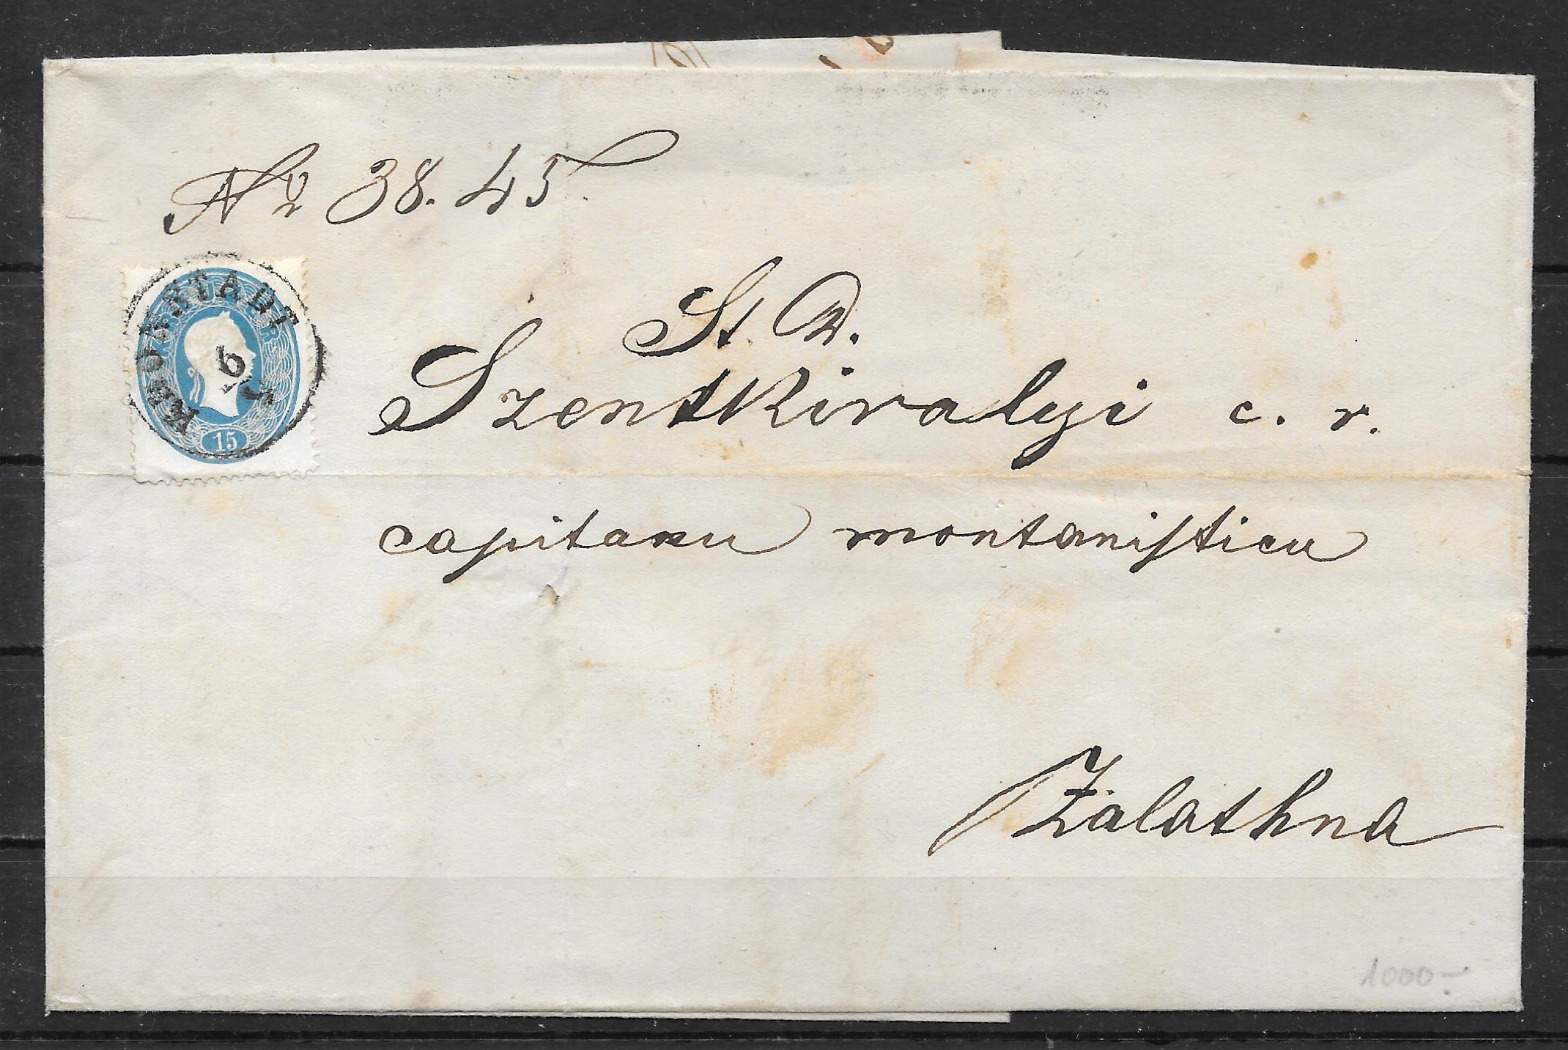 Nr 38. 45.
KRONSTADT
6
15
St. D.
Szentkiralyi c. r.
capitanu montanisticu
Zalathna
1000-